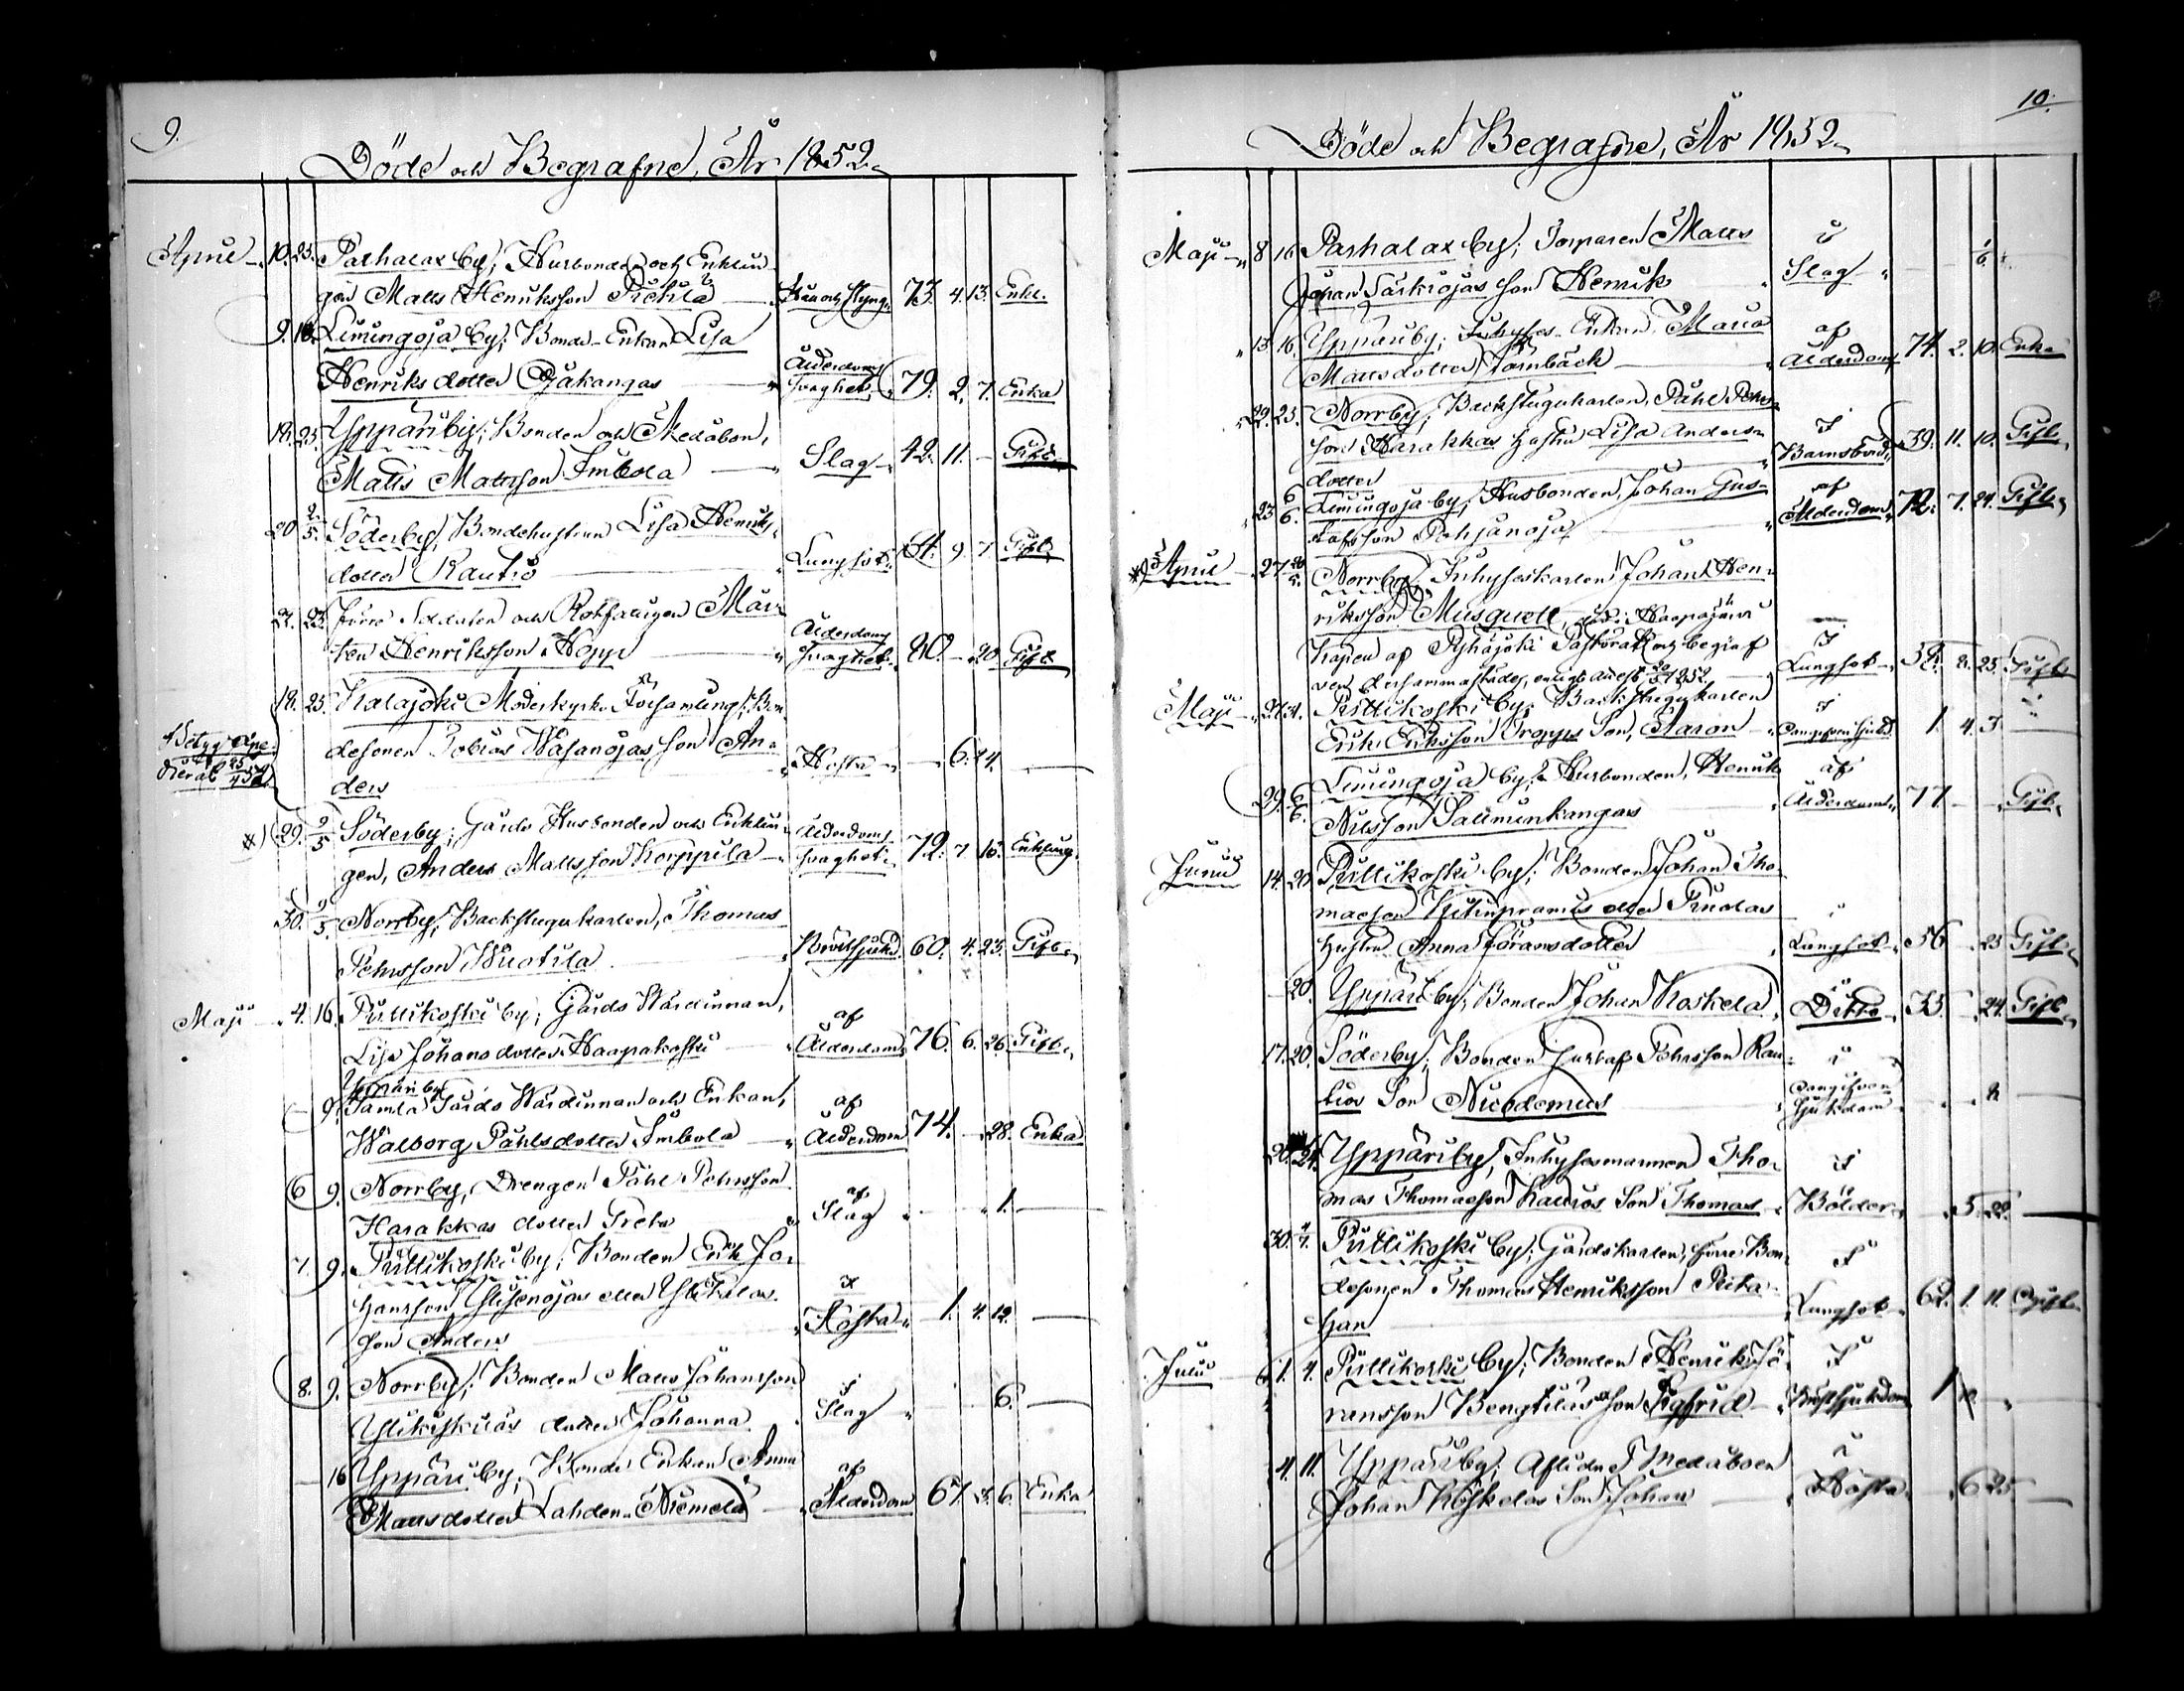 9.
Döde och Begrafne, År 1852.
April 10. 25. Parhalax by; Husbonden och Enklin-
gen Matts Henriksson Pirhilä Håll och Styng 73. 4. 13. Enkl.
9. 18. Limingoja by; Bonde-Enkan Lisa
Henriks dotter Ojakangas Ålderdoms svaghet 79. 2. 7. Enka
18. 25. Yppäriby; Bonden och Medåbon,
Matts Mattsson Imbola Slag 42. 11. – Gift
20. 2/5. Söderby; Bondehustrun Lisa Henriks
dotter Rautio Lungsot 9. 7. Gift
25. förre Soldaten och Rothfattigen Mår-
ten Henriksson Hopp Ålderdoms svaghet 80. – 20. Gift
18. 25. Kalajoki Moderkyrko Församling; Bon-
desonen Tobias Wasanojas son An-
ders Hosta – 6. 14. –
Betyg
29. 9/5 Söderby; Gårds Husbonden och Enklin-
gen, Anders Mattsson Korppila Ålderdoms svaghet 72. 7. 16. Enkling
30. 9/5. Norrby; Backstugukarlen, Thomas
Pehrsson Wuotila 60. 4. 23. Gift
Maji 4. 16. Pullikoski by; Gårds Wärdinnan,
Lisa Johans dotter Haapakoski af Ålderdom 76. 6. 26. Gift
Yppäri by
– 9. Gamla Gårds Wärdinnan och Enkan,
Walborg Påhlsdotter Imbola af Ålderdom 74. – 28. Enka
6 9. Norrby, Drengen Påhl Pehrsson
Harakkas dotter Greta af Slag – – 1. –
7. 9. Pullikoski by; Bonden Erik Jo-
hansson Ylisenojas eller Ylitalos
son Anders i Hosta 1. 4. 12. –
8. 9. Norrby; Bonden Matts Johansson
Ylikiskiläs dotter Johanna i Slag 6. –
– 16 Yppäri by; Bonde Enkan Anna
Mattsdotter Lahden-Niemelä af Ålderdom 67. 8. 6. Enka
10.
Döde och Begrafne, År 1852
Maji 8 16 Parhalax by; Torparen Matts
Johan Särkiojas son Henrik i Slag 6.
15 16. Yppäriby; Inhyses Enkan Maria
Mattsdotter Törnbäck af Ålderdom 74. 2. 10. Enka
22. 23. Norrby; Backstugukarlen, Påhl Pehrs-
son Harakkas hustru Lisa Anders-
dotter I Barnsbörd 39. 11. 10. Gift
23 6/6. Limingoja by; Husbonden, Johan Gus-
tafsson Pohjanoja af Ålderdom 72. 7. 24. Gift
April 27. Norrby, Inhyseskarlen Johan Hen-
riksson Musquell, död i Haapajärvi
Kapell af Pyhäjoki Pastorat och begraf
ven dersammastädes, enligt attest 1852 I Lungsot 2. 25. Gift
Maji Pullikoski by; Backstugukarlen
Erik Eriksson Tropps Son, Aaron i 1. 4. 3 –
29. 6/6. Limingoja by; Husbonden, Henrik
Nilsson Salmunkangas af Ålderdom 77 – Gift
Junii 14. 20 Pullikoski by; Bonden Johan Tho-
masson eller
hustru Anna Göransdotter i Lungsot 56 – 25 Gift
– 20. Yppäri by; Bonden Johan Koskela i Ditto 33 – 24. Gift
17. 20. Söderby; Bonden Gustaf Pehrsson Rau-
tios Son Nicodemus i Sjukdom
Yppäriby, Inhysesmannen Tho-
mas Thomasson Kalliros Son Thomas i Bölder 5. 28. –
30. 4/7. Pullikoski by; Gårdskarlen, förre Bon-
desonen Thomas Henriksson
I Lungsot 62. 1. 11. Gift
Julii 1. 4. Pullikoski by; Bonden Henrik Jö-
ransson Bengtiläs Son Sigfrid I Bröstsjukdom 1
4. 11. Yppäriby; Aflidne Medåboen
Johan Koskelas Son Johan i Hosta 6 25 –